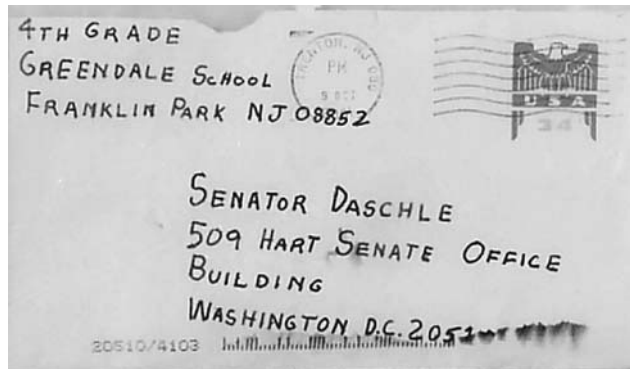 4TH GRADE
GREENDALE SCHOOL
FRANKLIN PARK NJ 08852
TRENTON, NJ
PM
USA
34
SENATOR DASCHLE
509 HART SENATE OFFICE
BUILDING
WASHINGTON D.C. 2051
20510/4103